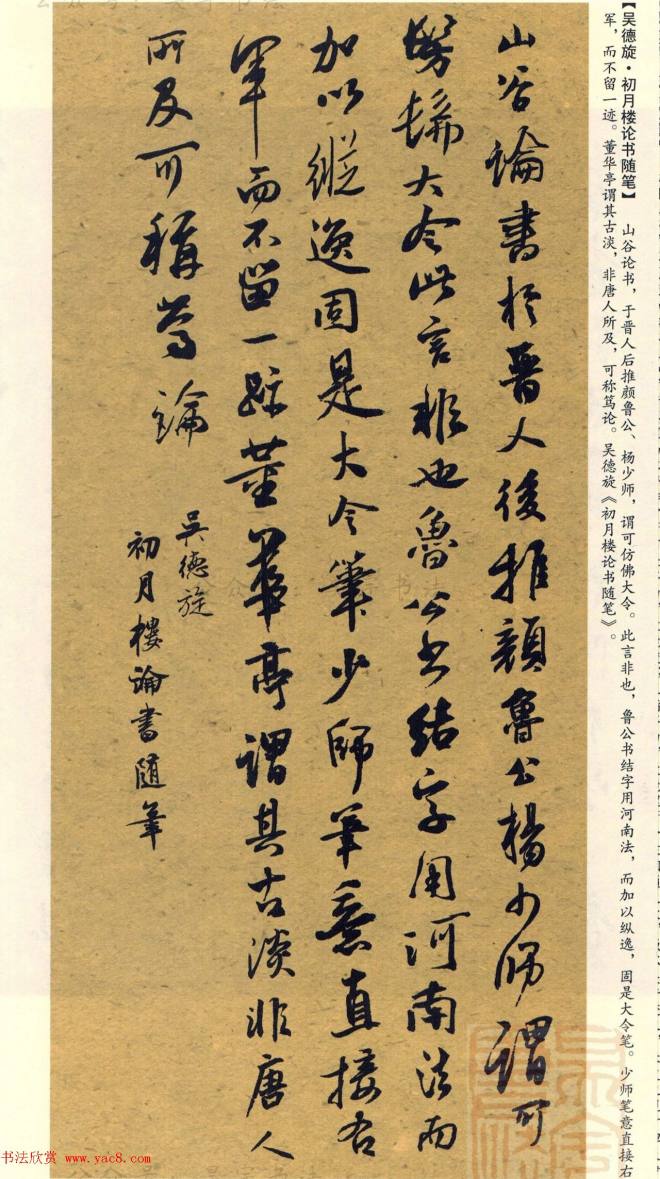 【吴德旋·初月楼论书随笔】 山谷论书，于晋人后推颜鲁公、杨少师，谓可仿佛大令。此言非也，鲁公书结字用河南法，而加以纵逸，固是大令笔。少师笔意直接右
军，而不留一迹。董华亭谓其古淡，非唐人所及，可称笃论。吴德旋《初月楼论书随笔》。
山谷論書於晉人後推顔魯公楊少師謂可
髣髴大令此言非也魯公書結字用河南法而
加以縱逸固是大令筆少師筆意直接右
軍而不留一跡董華亭謂其古淡非唐人
所及可稱篤論
吳德旋
初月樓論書随筆
书法欣赏 www.yac8.com